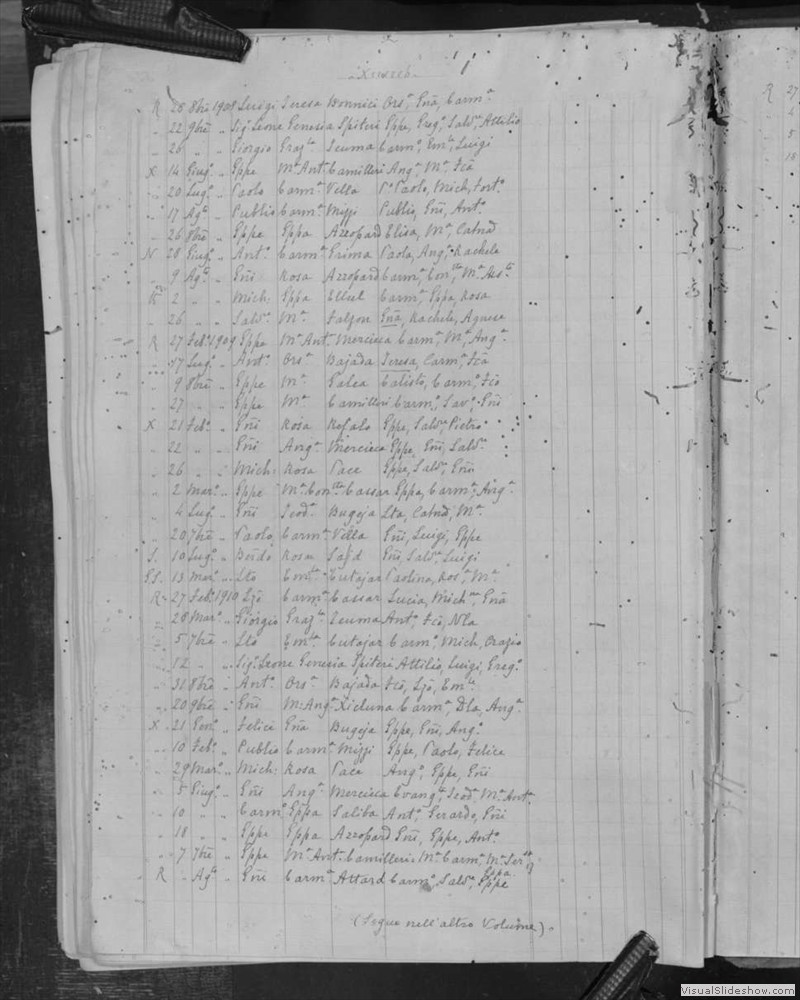 R 28 8bre 1908 Luigi Teresa Bonnici Ors.a, Gna, Carm.a
" 22 9bre " Sig. Leone Genesia Spiteri Eppe, Greg.o, Salv.e, Attilio
" 26 " " Giorgio Graz.la Zcuma Carm.o, Em.le, Luigi
X 14 Giug.o " Eppe M.a Ant.a Camilleri Ang.a, M.a, Fca
" 20 Lug.o " Paolo Carm.a Vella P.o Paolo, Mich, Fort.o
" 17 Ag.to " Publio Carm.a Mizzi Publio, Gni, Ant.o
" 26 8bre " Eppe Eppa Azzopard Elisa, M.a, Catna
N 28 Giug.o " Ant.o Carm.a Grima Paola, Ang.a, Rachela
" 9 Ag.to " Gni Rosa Azzopard Carm.a, Con.tta, M.a
" 2 " " Mich: Eppa Ellul Carm.a, Eppa, Rosa
" 26 " " Salv.e M.a Falzon Gna, Rachele, Agnese
R 27 Feb.o 1909 Eppe M.a Ant.a Mercieca Carm.a, M.a, Ang.a
" 17 Lug.o " Ant.o Ors.a Bajada Teresa, Carm.a, Fca
" 9 8bre " Eppe M.a Galea Calisto, Carm.o, Fco
" 27 " " Eppe M.a Camilleri Carm.o, Sav.o, Gni
X 21 Feb.o " Gni Rosa Refalo Eppe, Salv.e, Pietro
" 22 " " Gni Ang.a Mercieca Eppe, Gni, Salv.e
" 26 " " Mich: Rosa Pace Eppe, Salv.e, Gni
" 2 Mar.o " Eppe M.a Con.tta Cassar Eppa, Carm.a, Ang.a
" 4 Lug.o " Gni Teod.a Bugeja Lta, Catna, M.a
" 20 7bre " Paolo Carm.a Vella Gni, Luigi, Eppe
S. 10 Lug.o " Rosa Said Gni, Salv.e, Luigi
SS. 13 Mar.o " Lto Em.la Cutajar Paolina, Ros.a, M.a
R 27 Feb.o 1910 Lzo Carm.a Cassar Lucia, Mich.na, Gna
" 28 Mar.o " Giorgio Graz.la Zcuma Ant.o, Fco, Nla
" 5 7bre " Lto Em.la Cutajar Carm.o, Mich, Orazio
" 12 " " Sig. Leone Genesia Spiteri Attilio, Luigi, Greg.o
" 31 8bre " Ant.o Ors.a Bajada Fco, Lzo, Em.le
" 20 9bre " Gni M: Ang.a Xicluna Carm.a, Dla, Ang.a
X 21 Gen.o " Felice Gna Bugeja Eppe, Gni, Ang.o
" 10 Feb.o " Publio Carm.a Mizzi Eppe, Paolo, Felice
" 29 Mar.o " Mich: Rosa Pace Ang.o, Eppe, Gni
" 5 Giug.o " Gni Ang.a Mercieca Evang.ta, Teod.a, M.a Ant.a
" 10 " " Carm.o Eppa Saliba Ant.o, Gerardo, Gni
" 18 " " Eppe Eppa Azzopard Gni, Eppe, Ant.o
" 7 7bre " Eppe M.a Ant.a Camilleri M.a Carm.a, M.a
Eppa
R " Ag.to " Gni Carm.a Attard Carm.o, Salv.e, Eppe
(Segue nell'altro Volume).
R 27
18
VisualSlideshow.com